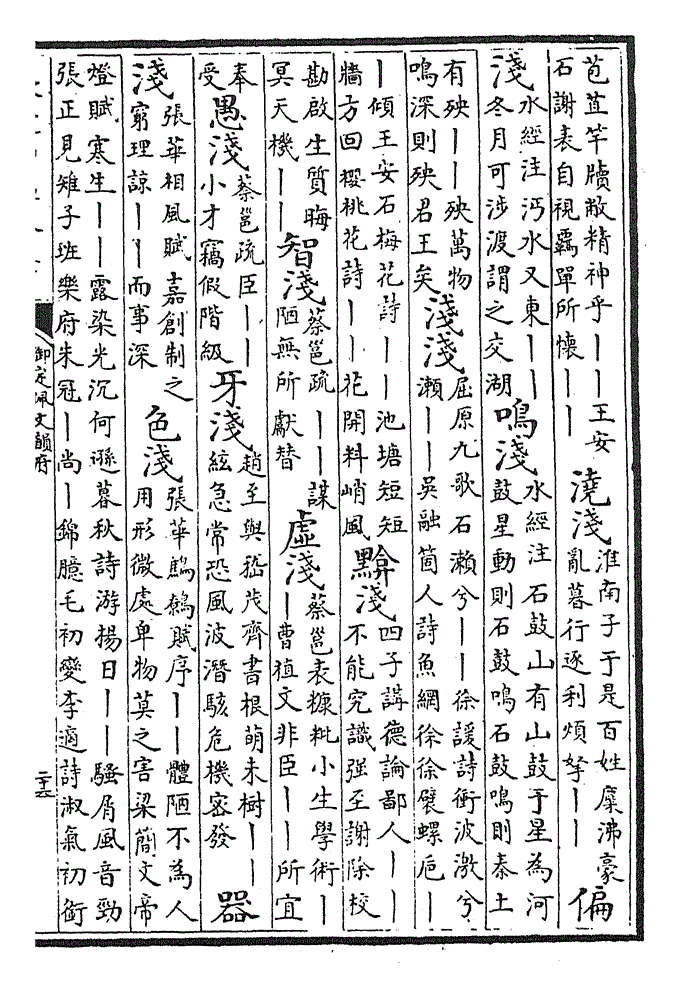 苞苴竿牘敝精神乎——王安
石謝表自視羈單所懷——
澆淺
淮南子于是百姓糜沸豪
亂暮行逐利煩挐——
偏
淺
水經注沔水又東——
冬月可涉渡謂之交湖
鳴淺
水經注石鼓山有山鼓于星為河
鼓星動則石鼓鳴石鼓鳴則秦土
有殃——殃萬物
鳴深則殃君王矣
淺淺
屈原九歌石瀨兮——徐諼詩衝波激兮
瀨——吳融箇人詩魚網徐徐襞螺巵—
—傾王安石梅花詩——池塘短短
牆方回櫻桃花詩——花開料峭風
黭淺
四子講德論鄙人——
不能究識强至謝除校
勘啟生質晦
冥天機——
智淺
蔡邕疏——謀
陋無所獻替
虛淺
蔡邕表糠粃小生學術—
—曹植文非臣——所宜
奉
受
愚淺
蔡邕疏臣——
小才竊假階級
牙淺
趙至與嵇茂齊書根萌未樹——
絃急常恐風波潛駭危機密發
器
淺
張華相風賦嘉創制之
窮理諒——而事深
色淺
張華鷦鷯賦序——體陋不為人
用形微處卑物莫之害梁簡文帝
燈賦寒生——露染光沉何遜暮秋詩游揚日——騷屑風音勁
張正見雉子班樂府朱冠—尚—錦臆毛初變李適詩淑氣初銜
御定佩文韻府